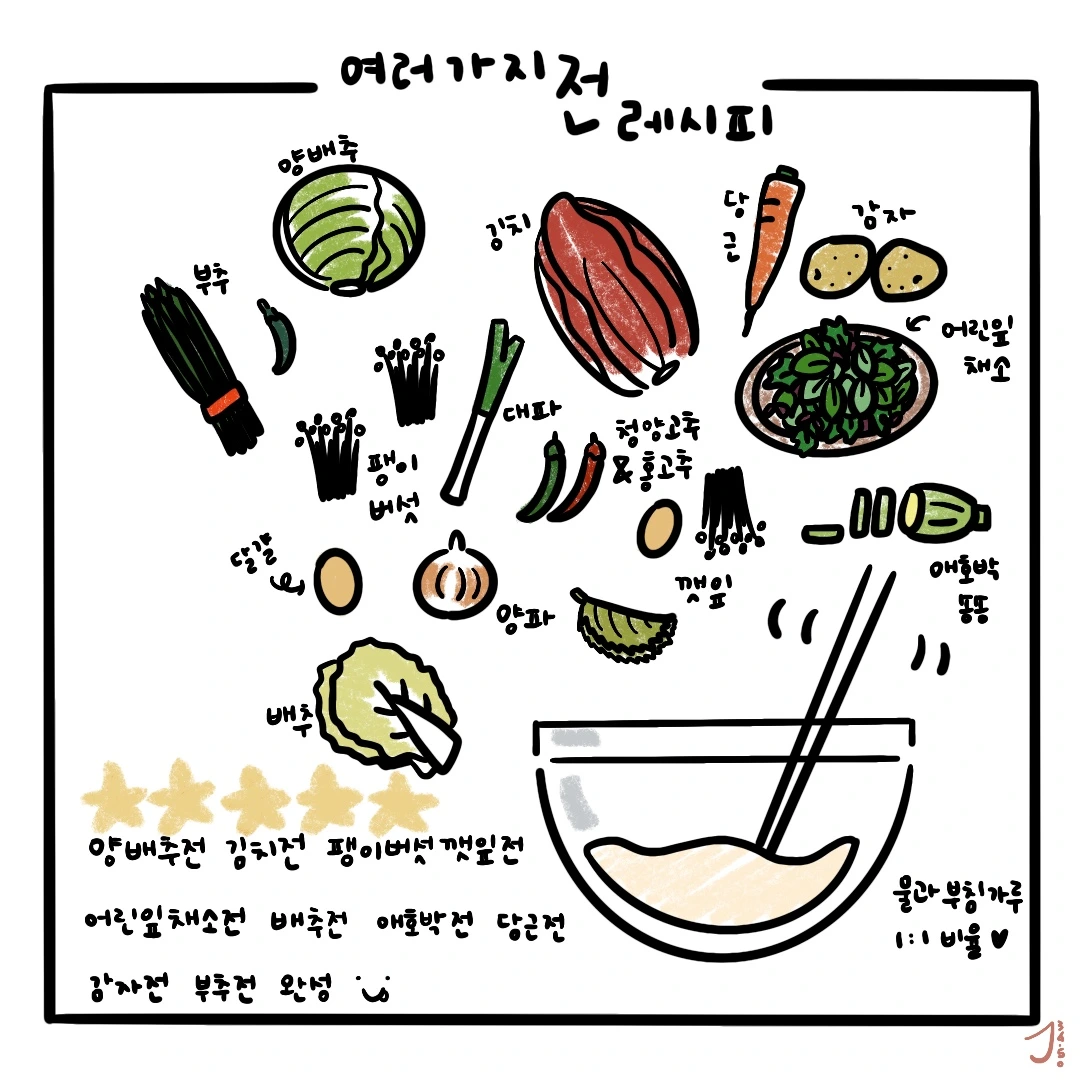 여러가지 전
레시피
양배추
김치
당
근
감자
부추
어린잎
채소
대파
청양고추
& 홍고추
팽이
버섯
달걀
양파
깻잎
애호박
똥똥
배추
양배추전 김치전 팽이버섯깻잎전
어린잎채소전 배추전 애호박전 당근전
감자전 부추전 완성
물과 부침가루
1:1 비율 ♥